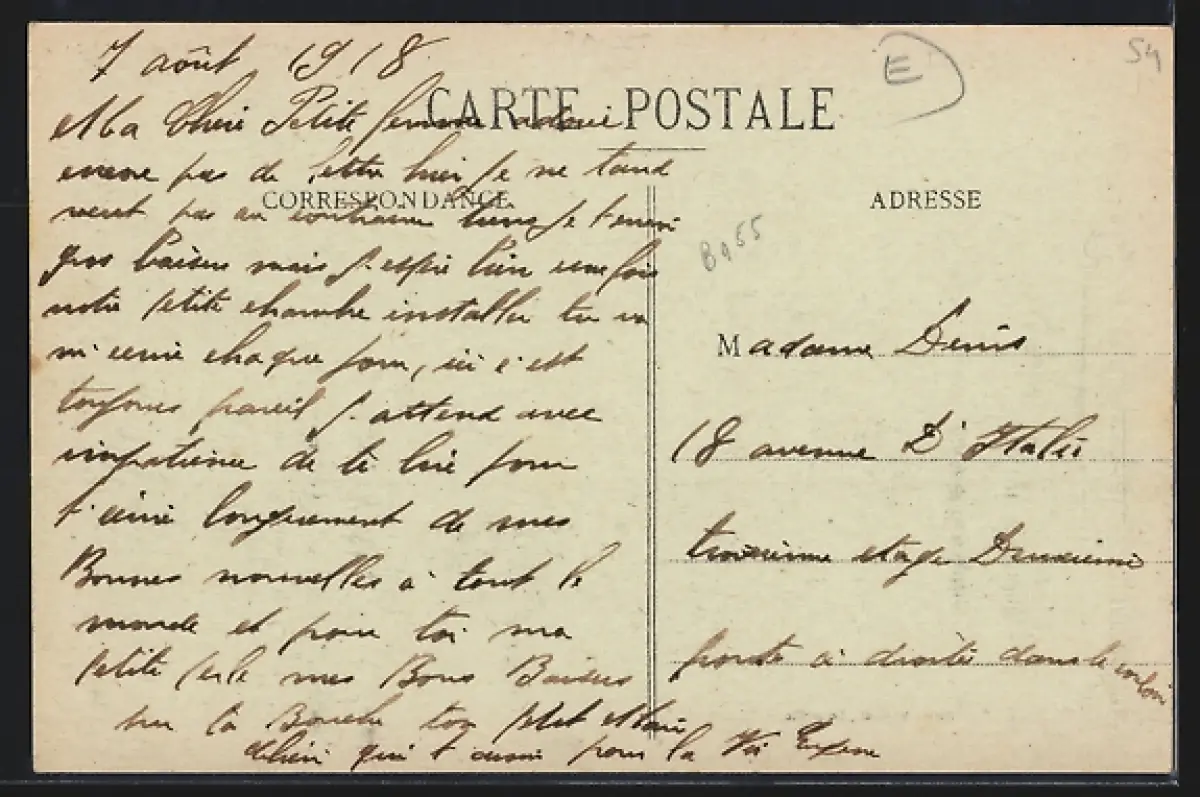 7 août 1918
CARTE POSTALE
E
54
Ma Chère Petite femme adoré
encore pas de lettre hier je ne tand
veut pas au contraire
CORRESPONDANCE
ADRESSE
B955
gros baisers mais j. espère bien une fois
notre petite chambre installer tu va
m'ecrire chaque jour, ici c'est
toujours pareil j. attend avec
impatience de te lire pour
t'ecrire longuement de mes
Bonnes nouvelles à tout le
monde et pour toi ma
petite mes Bons Baisers
sur la Bouche ton petit Mari
chéri qui t'aime pour la Vie Eugène
Madame Denis
18 avenue D'Italie
troisième etage Deuxième
porte à droite dans le couloir